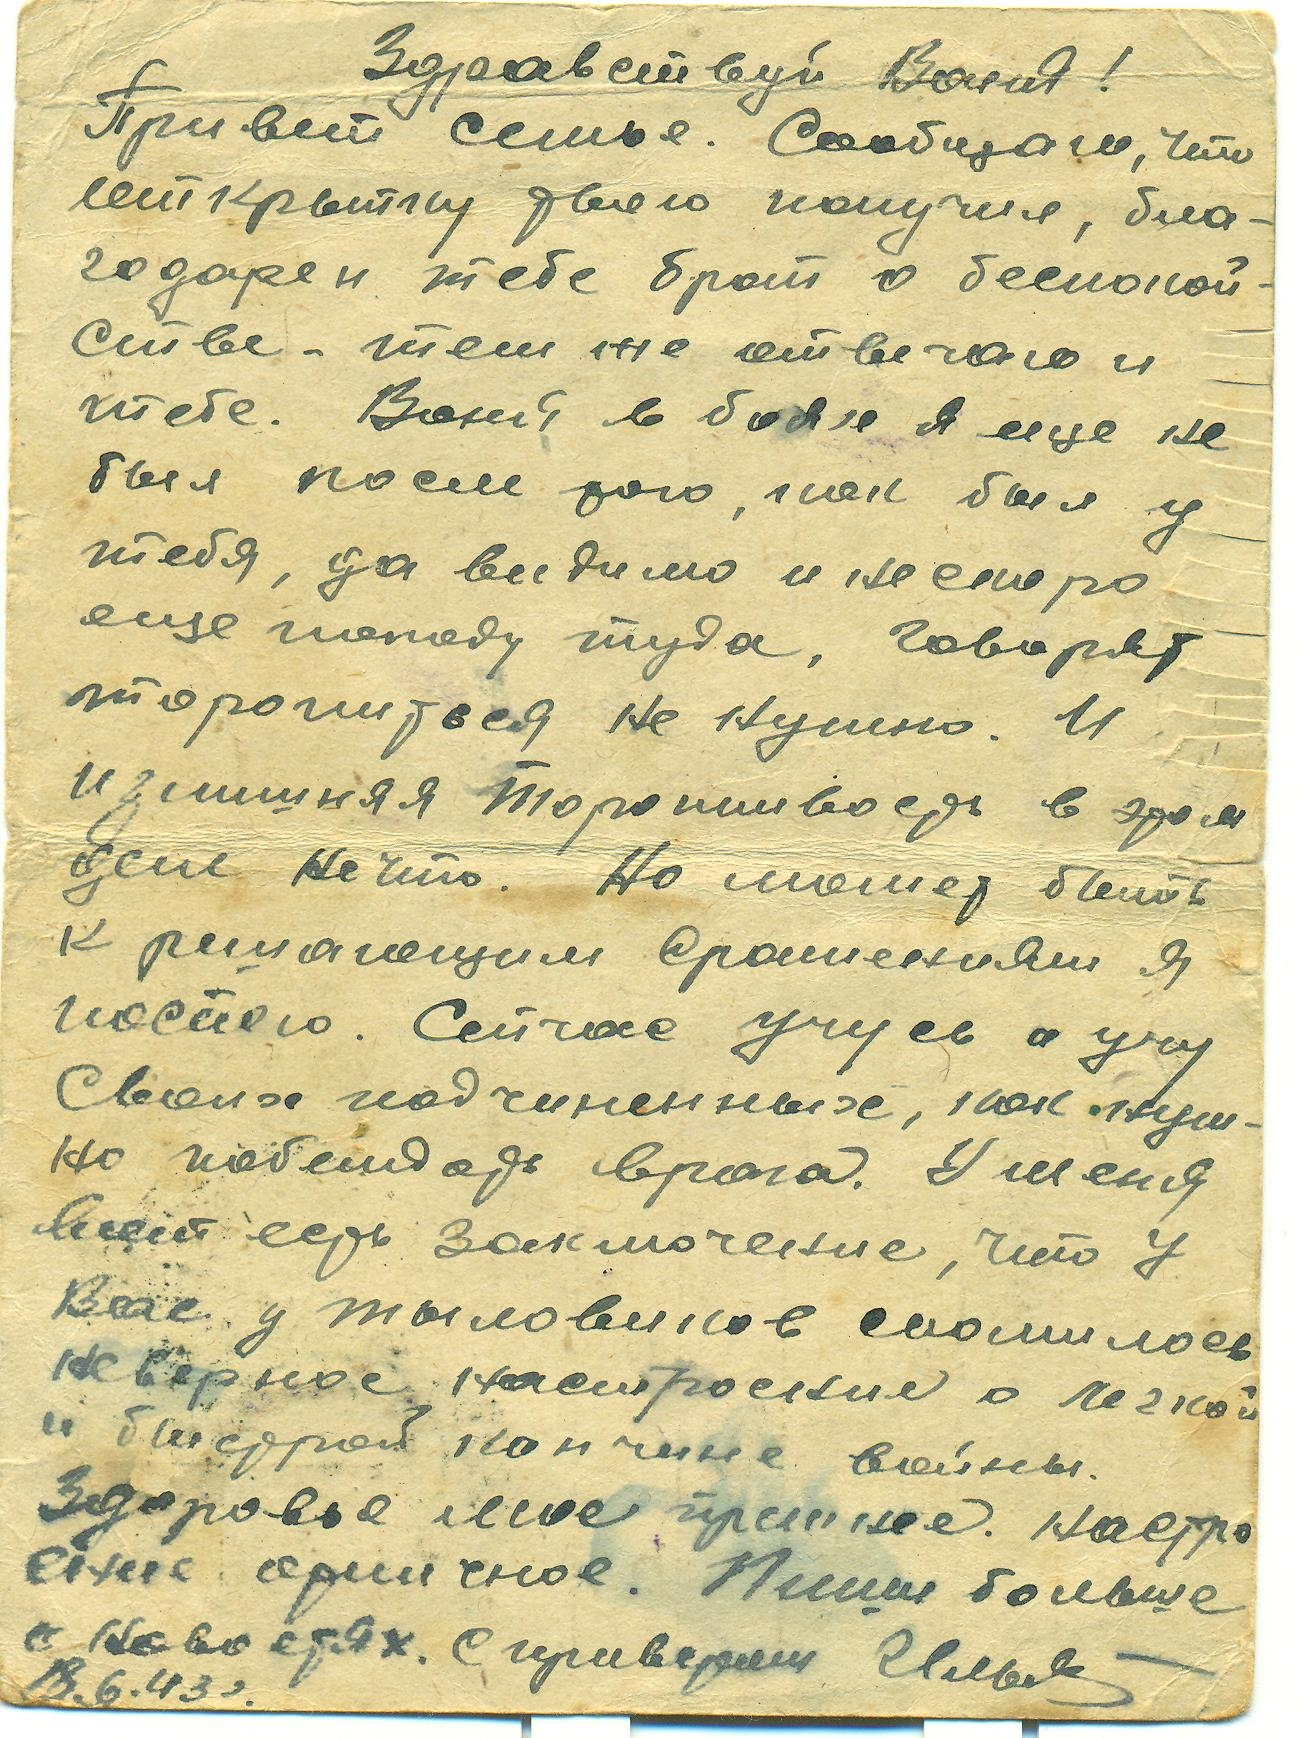 Здравствуй Ваня!
Привет семье. Сообщаю, что
открытку твою получил, бла-
годарен тебе брат о беспокой-
стве - тем же отвечаю и
тебе. Ваня в боях я еще не
был после того, как был у
тебя, да видимо и не скоро
еще попаду туда, говорят
торопиться не нужно. И
излишняя торопливость в этом
деле не что. Но может быть
к решающим сражениям я
поспею. Сейчас учусь и учу
своих подчиненных, как нуж-
но побеждать врага. У меня
вот есть заключение, что у
Вас у тыловиков сложилось
неверное настроение о легкой
и быстрой кончине войны.
Здоровье мое прежнее. Настро
ение отличное. Пиши больше
о новостях. С приветом Илья
13.6.43 г.